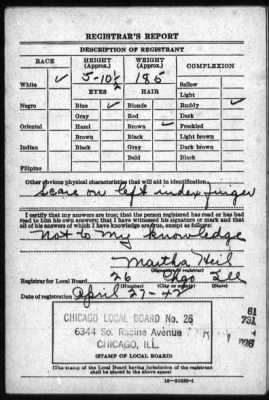 REGISTRAR'S REPORT
DESCRIPTION OF REGISTRANT
RACE HEIGHT (Approx.) WEIGHT (Approx.) COMPLEXION
White ✓ 5-10½ 185 Sallow
EYES HAIR Light
Negro Blue ✓ Blonde Ruddy ✓
Gray Red Dark
Oriental Hazel Brown ✓ Freckled
Brown Black Light brown
Indian Black Gray Dark brown
Bald Black
Filipino
Other obvious physical characteristics that will aid in identification
Scar on left index finger
I certify that my answers are true; that the person registered has read or has had
read to him his own answers; that I have witnessed his signature or mark and that
all of his answers of which I have knowledge are true, except as follows:
Not to my knowledge
Martha Heil
(Signature of registrar)
Registrar for Local Board 26 Chgo Ill
(Number) (City or county)
Date of registration April 27-42
CHICAGO LOCAL BOARD No. 26
6344 So. Racine Avenue
CHICAGO, ILL.
61
731
(STAMP OF LOCAL BOARD)
(The stamp of the Local Board having jurisdiction of the registrant
shall be placed in the above space.)